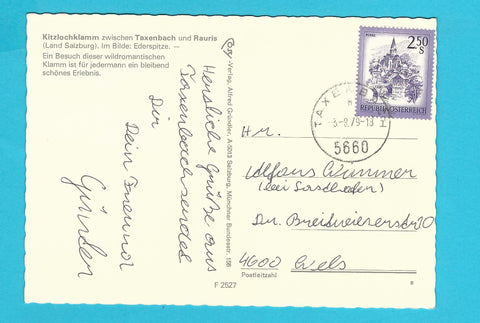 Kitzlochklamm zwischen Taxenbach und Rauris
(Land Salzburg). Im Bilde: Ederspitze. —
Ein Besuch dieser wildromantischen
Klamm ist für jedermann ein bleibend
schönes Erlebnis.
Herzliche Grüße aus
Taxenbach sendet
Dir
Dein Freund
Günter
Cosy-Verlag, Alfred Gründler, A-5013 Salzburg, Münchner Bundesstr. 156
F 2527
2,50
S
REPUBLIK ÖSTERREICH
TAXENBACH
-3.-8.79-18
5660
Hr.
(bei
Dr. Breitwieserstr. 30
4600 Wels
Postleitzahl